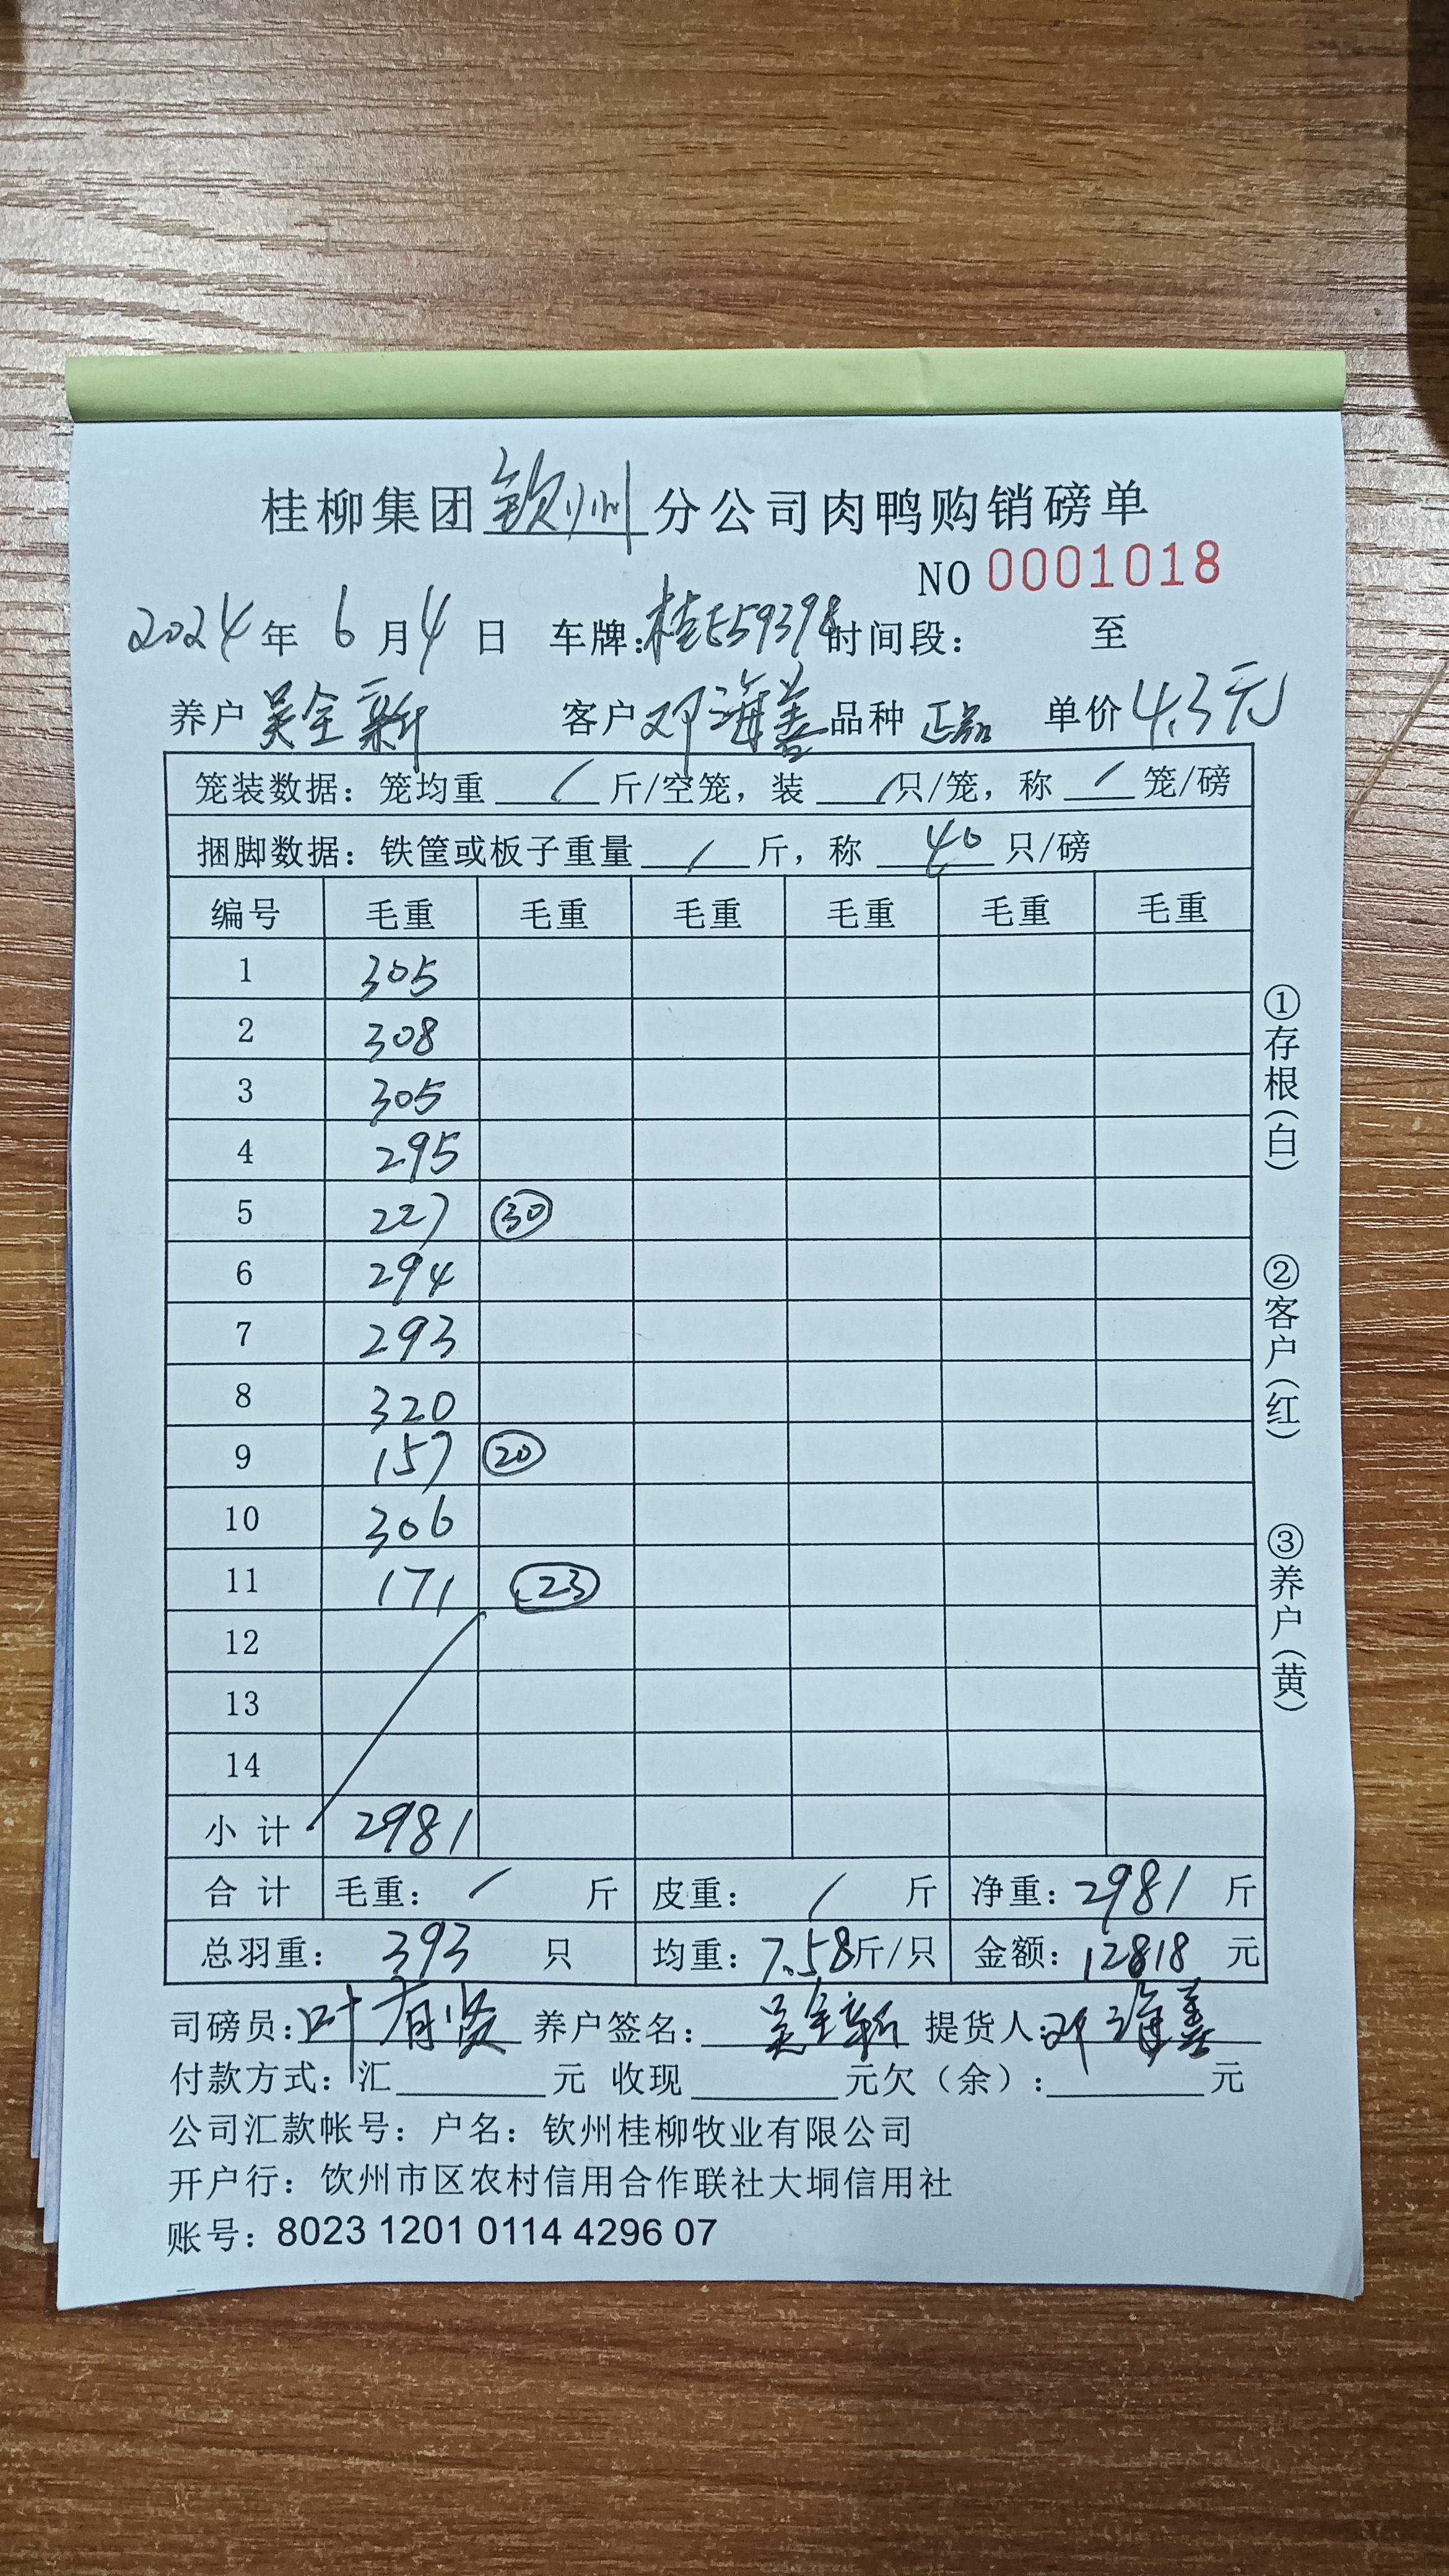 桂柳集团钦州分公司肉鸭购销磅单
NO 0001018
2024年 6月4日 车牌:桂E59398 时间段: 至
养户 吴全新 客户 邓海善 品种 正品 单价 4.3元
笼装数据: 笼均重 / 斤/空笼, 装 / 只/笼, 称 / 笼/磅
捆脚数据: 铁筐或板子重量 / 斤, 称 40 只/磅
编号 毛重 毛重 毛重 毛重 毛重 毛重
1 305
2 308
3 305
4 295
5 227 30
6 294
7 293
8 320
9 157 20
10 306
11 171 23
12
13
14
小计 2981
合计 毛重: / 斤 皮重: / 斤 净重: 2981 斤
总羽重: 393 只 均重: 7.58斤/只 金额: 12818 元
司磅员: 叶有贤 养户签名: 吴全新 提货人: 邓海善
付款方式: 汇 元 收现 元欠(余): 元
公司汇款帐号: 户名: 钦州桂柳牧业有限公司
开户行: 饮州市区农村信用合作联社大垌信用社
账号: 8023 1201 0114 4296 07
①存根(白)
②客户(红)
③养户(黄)